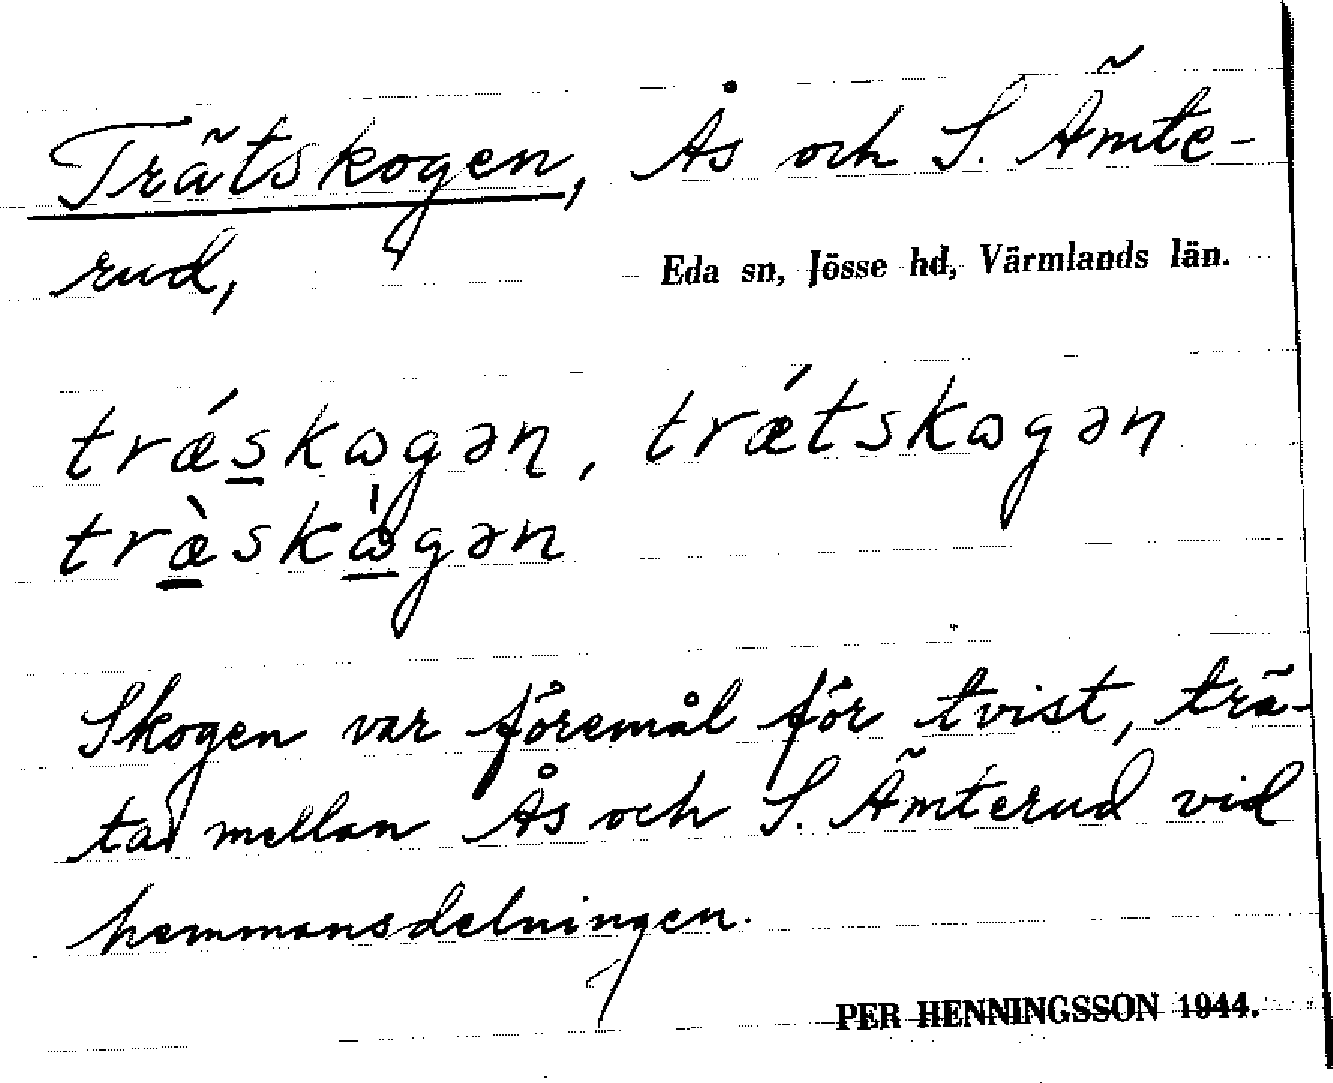 Trätskogen, Ås och S. Ämte-
rud,
Eda sn, Jösse hd, Värmlands län.
trǽskωgən, trǽtskωgən
træ̀skὼgən
Skogen var föremål för tvist, trä-
ta, mellan Ås och S. Ämterud vid
hemmansdelningen.
PER HENNINGSSON 1944.